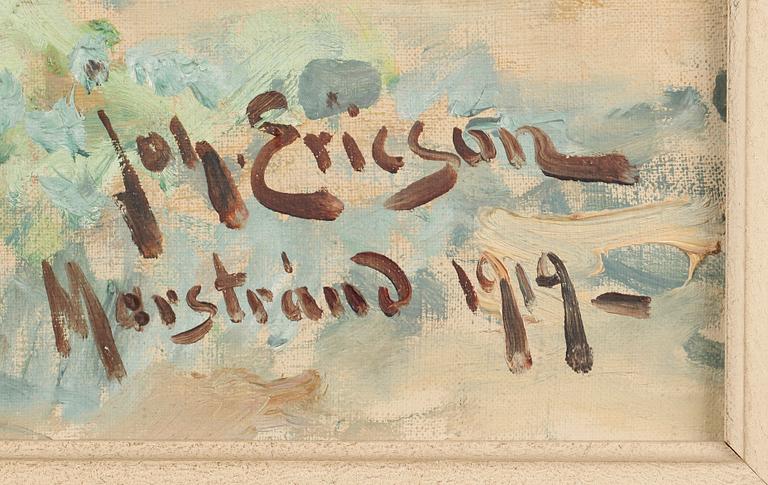 Joh. Ericson
Marstrand 1919-